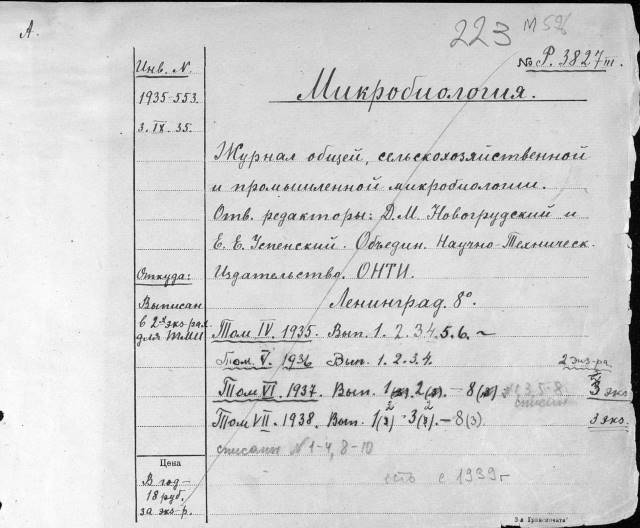 А.
223 М 596
№ Р. 3827 III.
Инв. N.
1935-553.
3. IX. 35.
Микробиология.
Журнал общей, сельскохозяйственной
и промышленной микробиологии.
Отв. редакторы: Д. М. Новогрудский и
Е. Е. Успенский. Объедин. Научно-Техническ.
Издательство. ОНТИ.
Ленинград. 8°.
Откуда:
Выписан
в 2х экз-рах
для
Том IV. 1935. Вып. 1. 2. 3. 4. 5. 6. ~
Том. V. 1936 Вып. 1. 2. 3. 4. 2 экз-ра
Том VI. 1937. Вып. 1 2 — 8 3 экз
списан
Том VII. 1938. Вып. 1(2) - 3(2). — 8 (3). 3 экз.
списаны № 1-4, 8-10
есть с 1939 г
Цена
В год —
18 руб.
за экз-р.